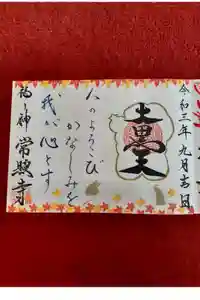 令和三年九月吉日
大黒天
人のよろこび
かなしみを
我が心とす
福の神 常照寺